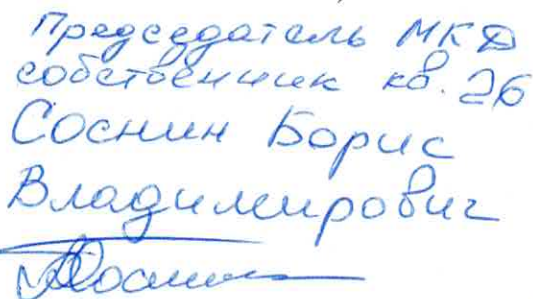 Председатель МКД
собственник кв. 26
Соснин Борис
Владимирович